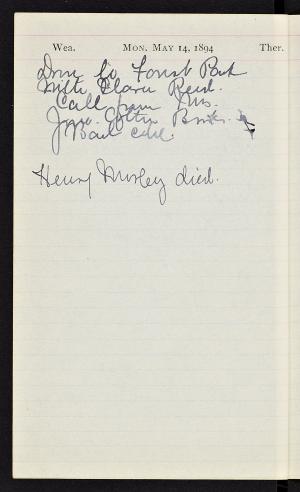 Wea. MON. MAY 14, 1894 Ther.
Drove to Forest Park
with Clara Reid.
Call from Mrs.
Jno.
Bad cold.
Henry Morley died.